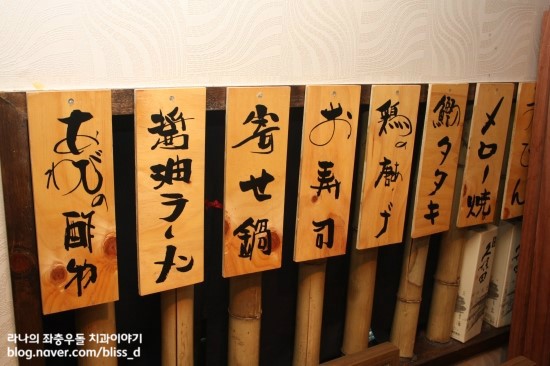 あわびの酢物
醤油ラーメン
寄せ鍋
お寿司
鶏の唐あげ
鰹タタキ
メロー焼
うどん
라나의 좌충우돌 치과이야기
blog.naver.com/bliss_d